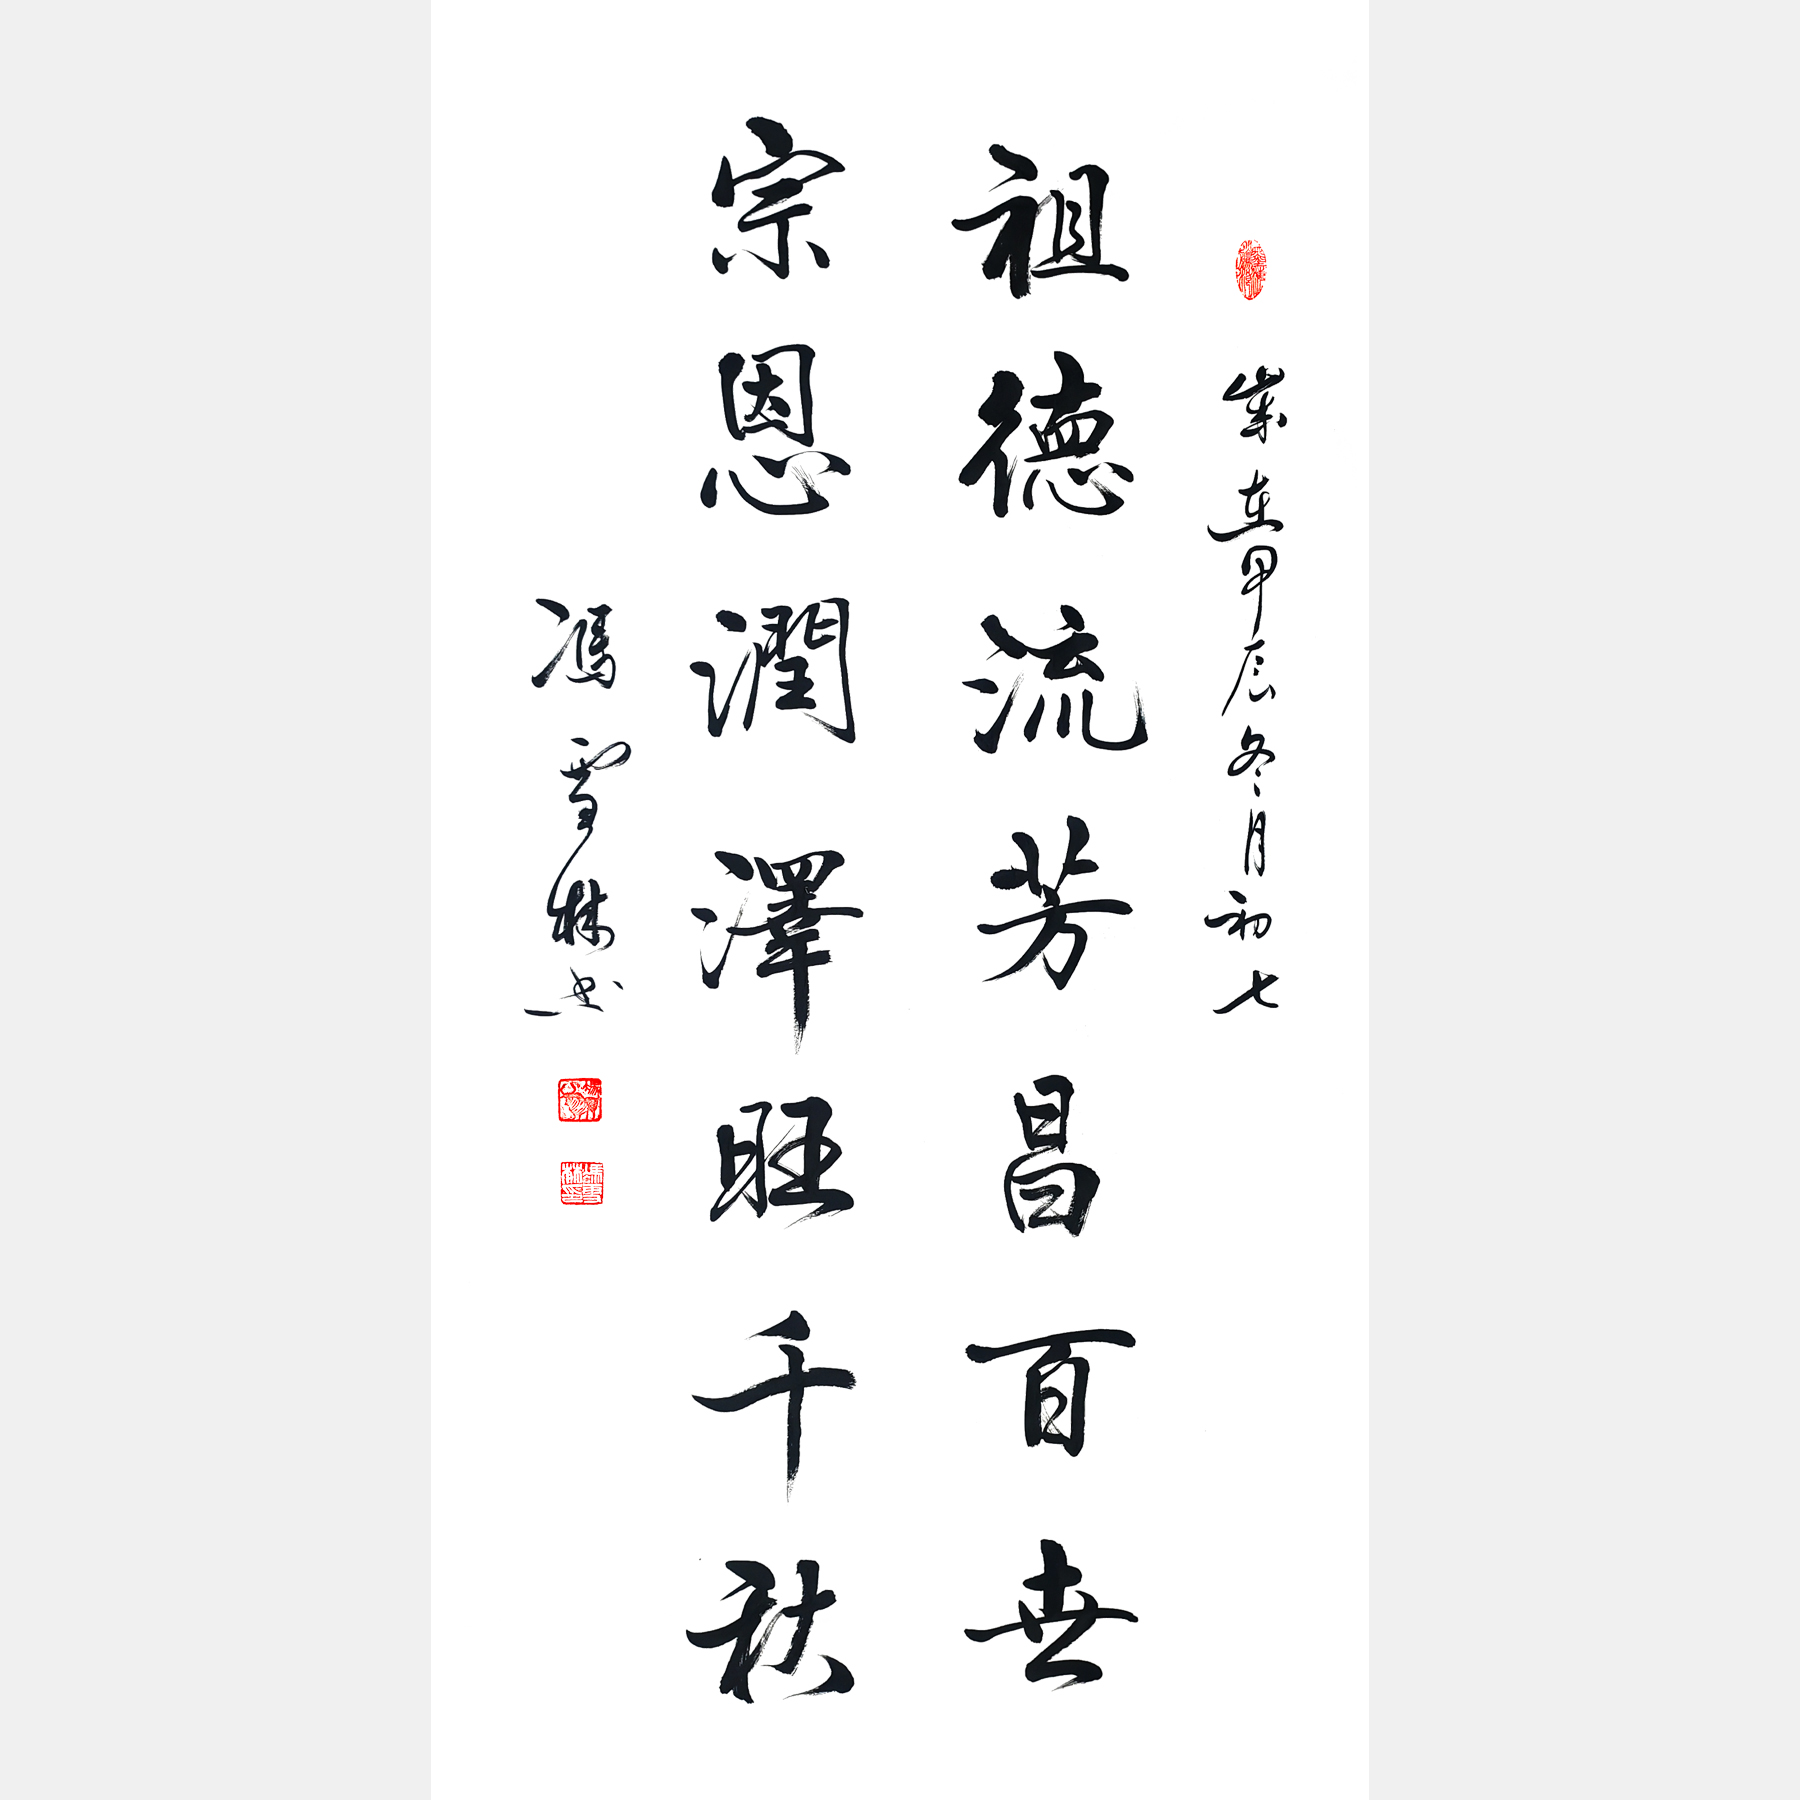 歲在甲辰冬月初七
祖德流芳昌百世
宗恩潤澤旺千秋
馮雪林书